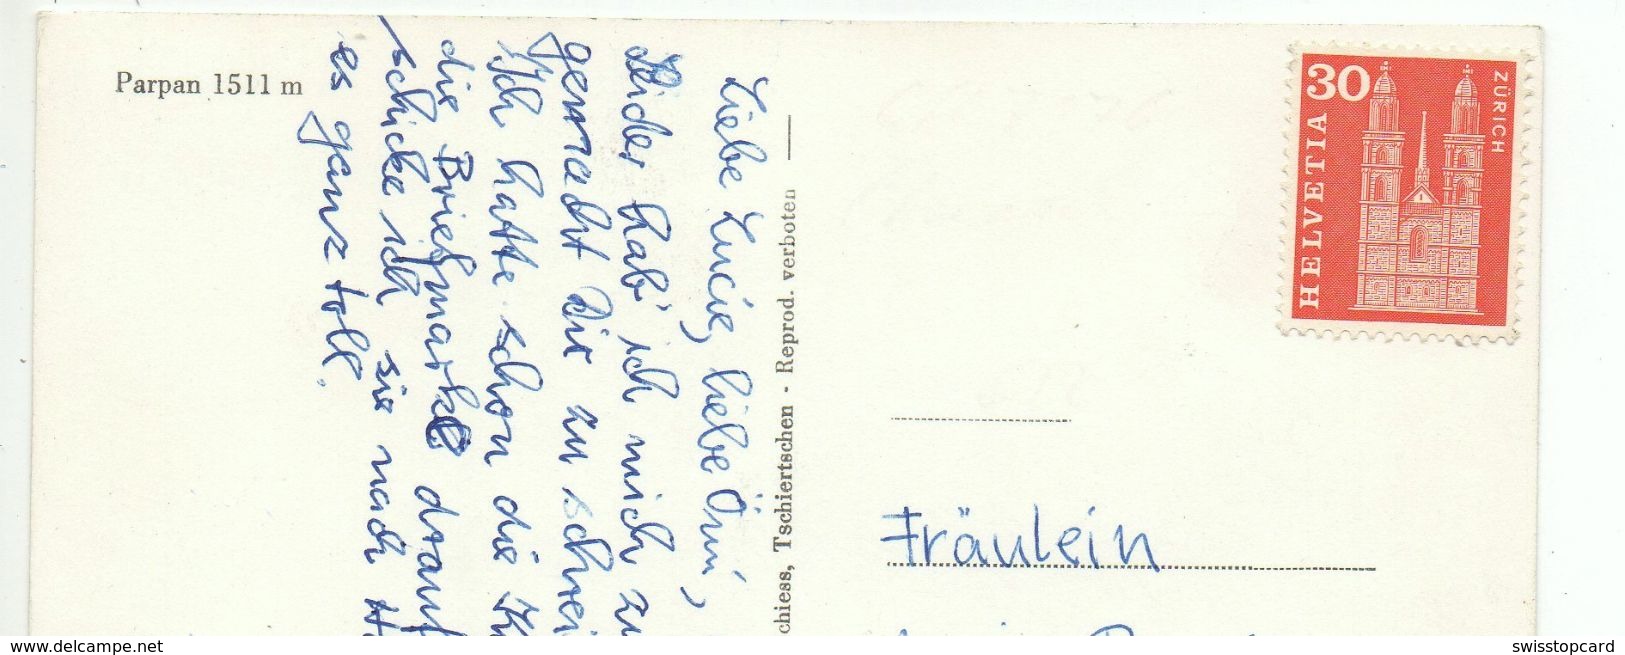 Parpan 1511 m
Liebe Lucie, liebe Omi,
Leider hab' ich mich
gemacht Dir zu
Ich hatte schon die
die Briefmarke
schicke ich sie nach
es ganz toll.
Tschiertschen - Reprod. verboten
30
HELVETIA
ZÜRICH
Fräulein
www.delcampe.net
swisstopcard